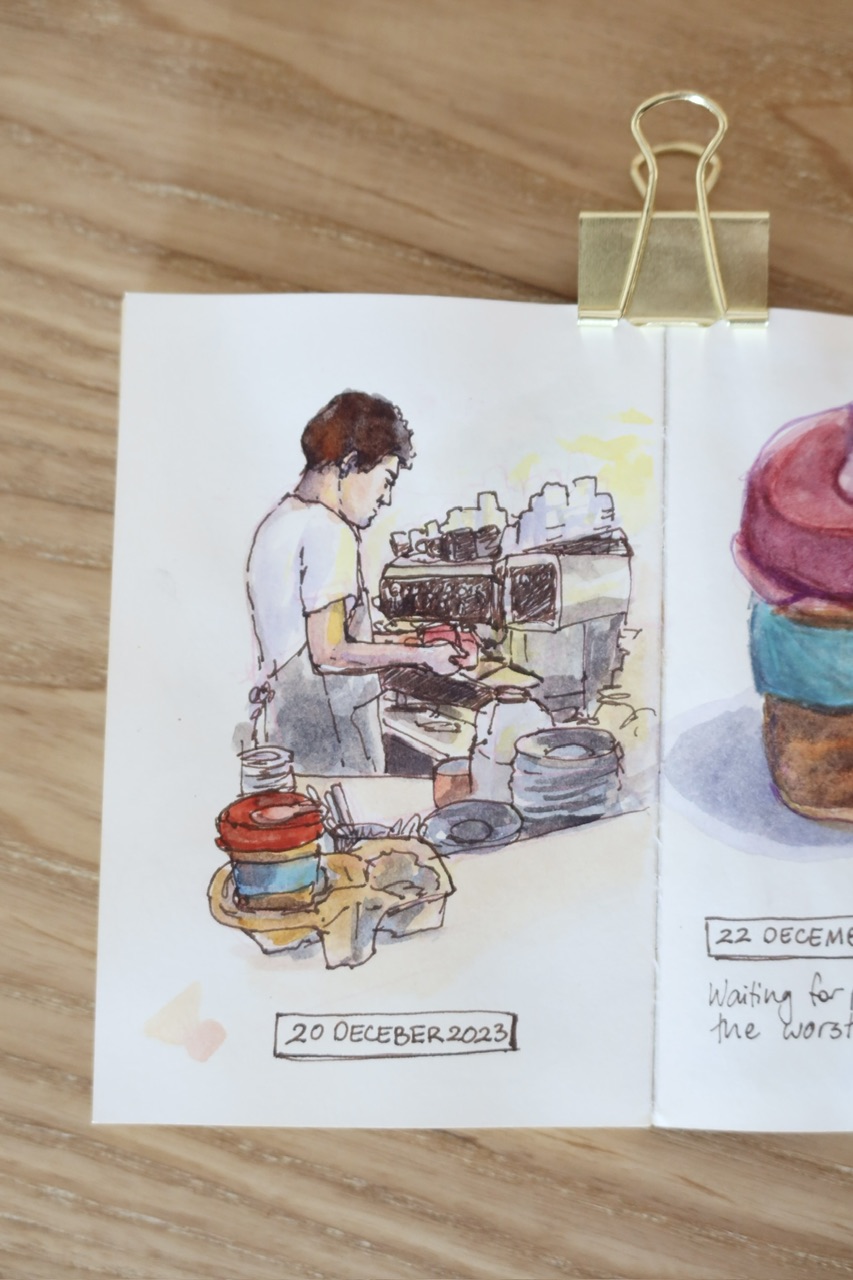 20 DECEBER 2023
22 DECEME
Waiting for
the worst